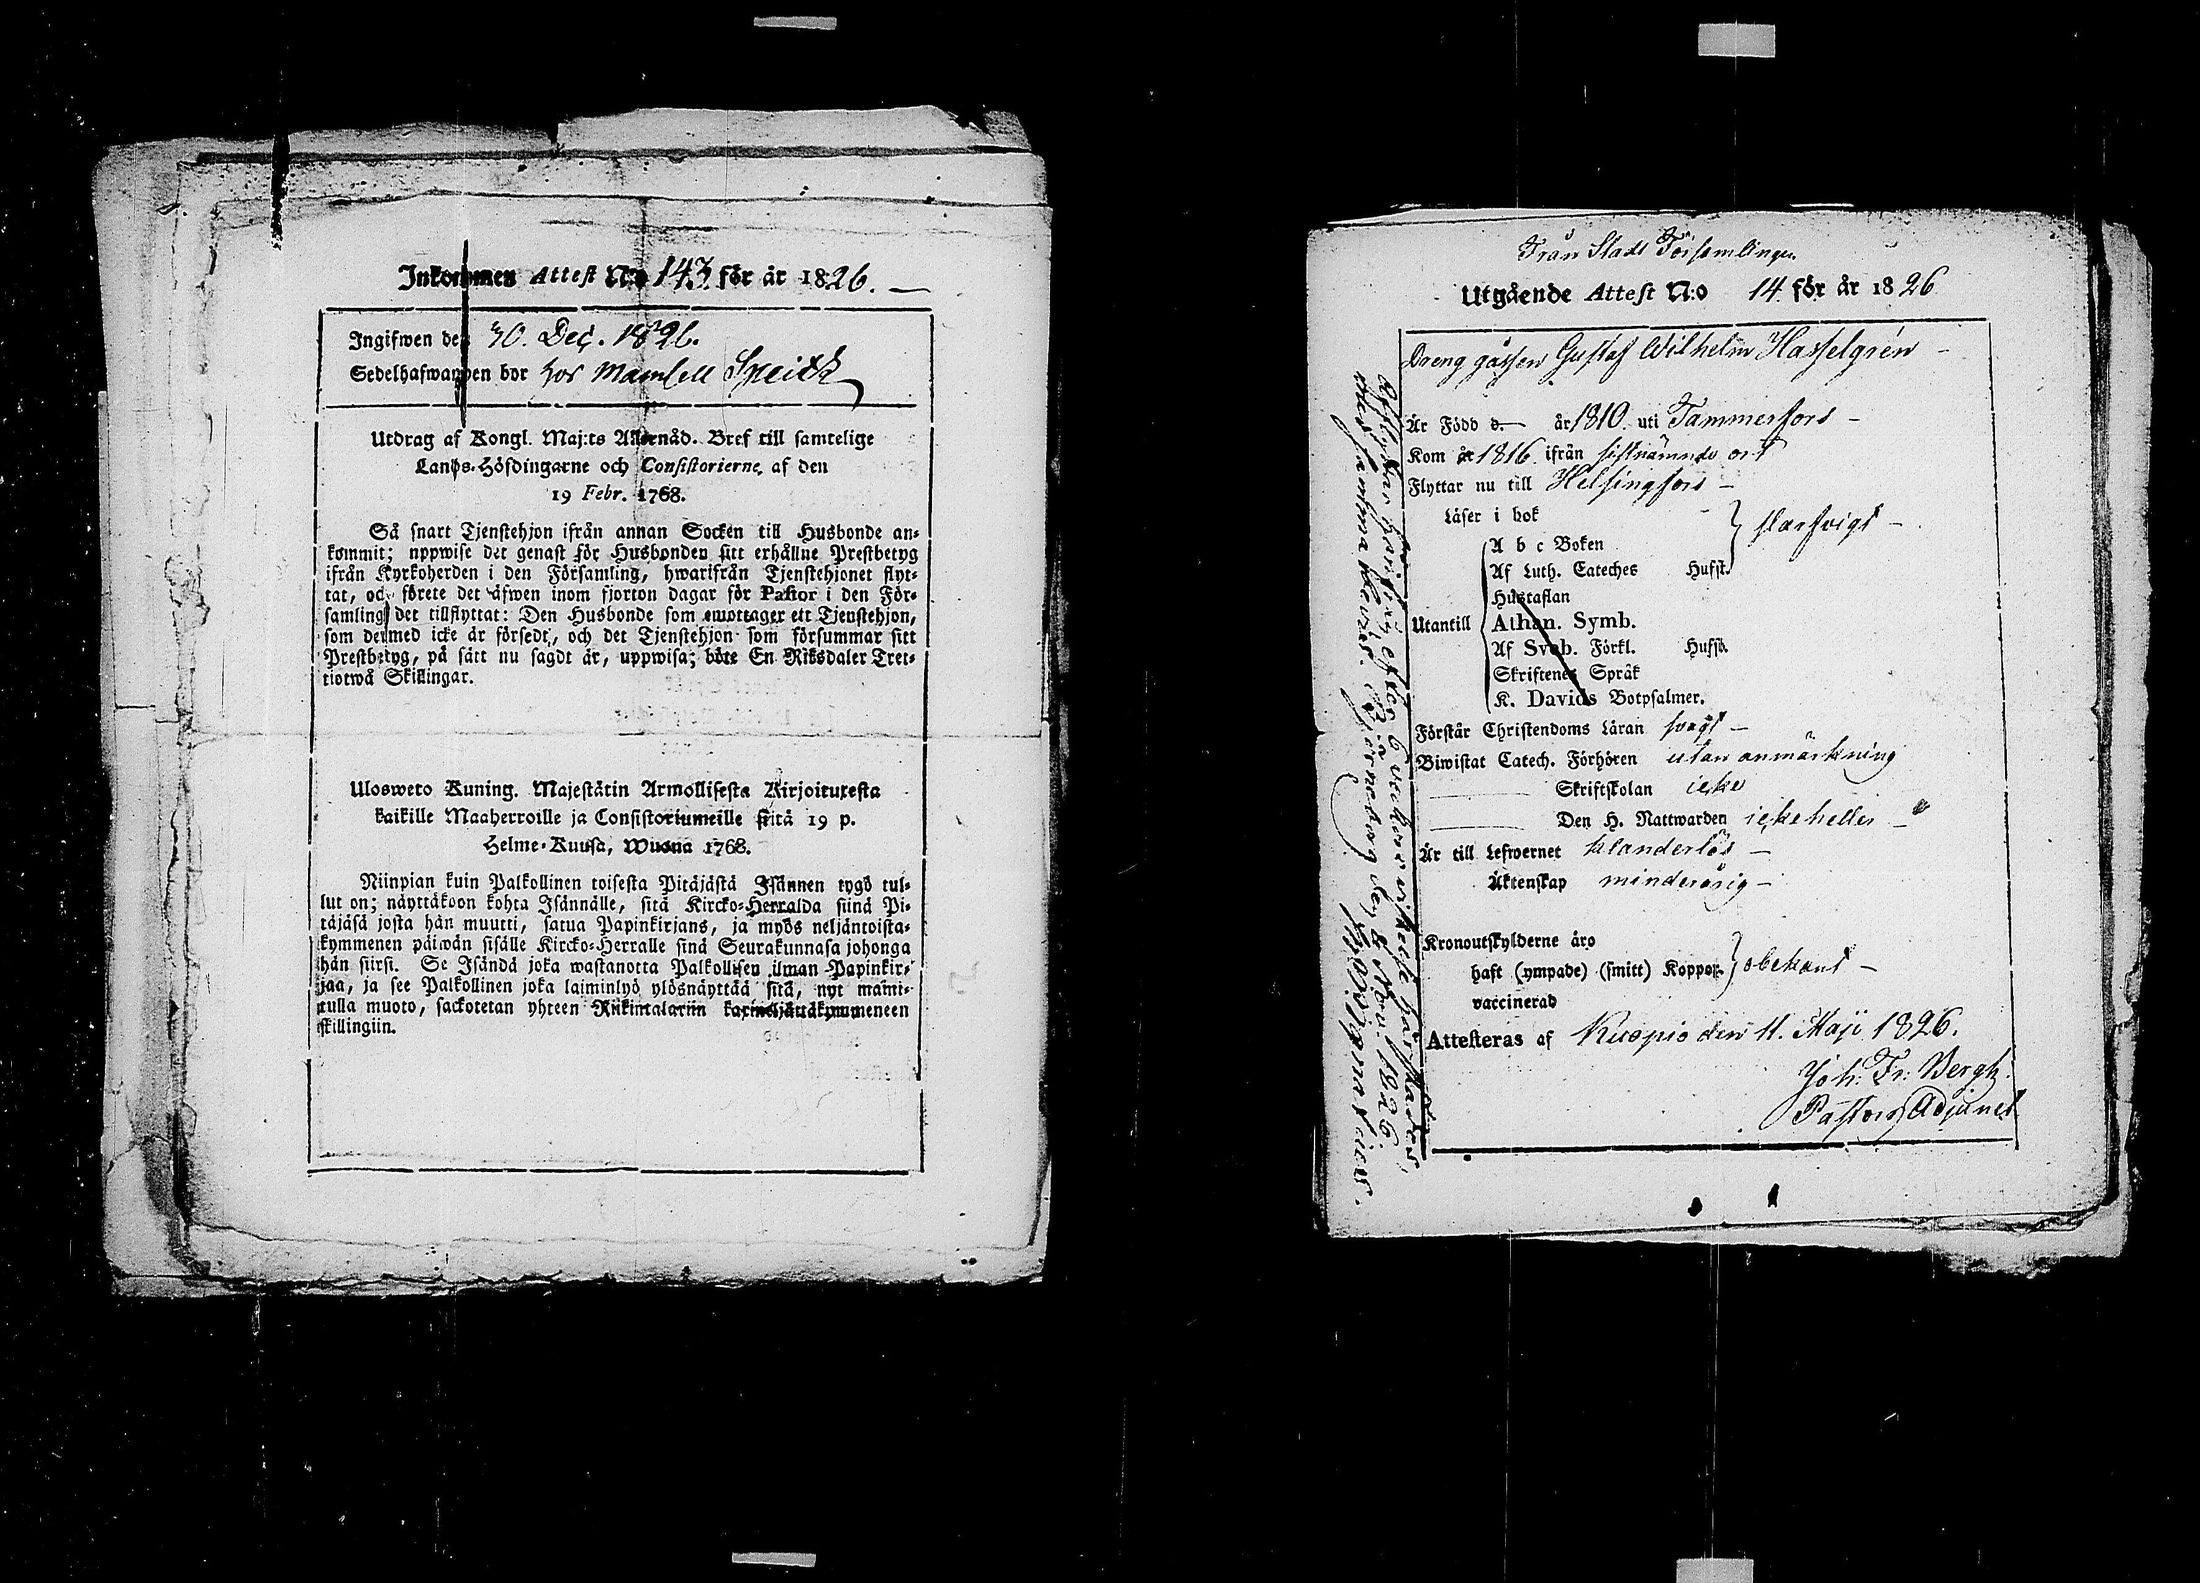 Inkommen Attest N:o 143 för år 1826.
Ingifwen den 30. Dec. 1826.
Sedelhafwanden bor hos Mamsell
Utdrag af Kongl. Maj:ts Allernåd. Bref till samtelige
Lands-Höfdingarne och Consistorierne, af den
19 Febr. 1768.
Så snart Tjenstehjon ifrån annan Socken till Husbonde an-
kommit; uppwise det genast för Husbonden sitt erhållne Prestbetyg
ifrån Kyrkoherden i den Församling, hwarifrån Tjenstehjonet flyt-
tat, och förete det äfwen inom fjorton dagar för Pastor i den För-
samling det tillflyttat: Den Husbonde som emottager ett Tjenstehjon,
som dermed icke är försedt, och det Tjenstehjon som försummar sitt
Prestbetyg, på sätt nu sagdt är, uppwisa; böte En Riksdaler Tret-
tiotwå Skillingar.
Ulosweto Kuning. Majestätin Armollisesta Kirjoituxesta
kaikille Maaherroille ja Consistoriumeille siitä 19 p.
Helme-Kuusa, Wuona 1768.
Niinpian kuin Palkollinen toisesta Pitäjästä Isännen tygö tul-
lut on; näyttäkoon kohta Isännälle, sitä Kircko-Herralda siinä Pi-
täjäsä josta hän muutti, satua Papinkirjans, ja myös neljäntoista-
kymmenen päiwän sisälle Kircko-Herralle sinä Seurakunnasa johonga
hän siirsi. Se Isändä joka wastanotta Palkollisen ilman Papinkir-
jaa, ja see Palkollinen joka laiminlyö ylösnäyttää sitä, nyt maini-
tulla muoto, sackotetan yhteen Riikintalariin kaxineljättäkymmeneen
skillingiin.
Från Stads Församlingen
Utgående Attest N:o 14 för år 1826
Dreng gåssen Gustaf Wilhelm Hasselgrén
Är Född d. år 1810. uti Tammerfors
Kom år 1816 ifrån sistnämnde ort
Flyttar nu till Helsingfors
Läser i bok
A b c Boken
Af Luth. Cateches Hufst. slarfvigt
Hustaflan
Utantill Athan. Symb.
Af Sveb. Förkl. Hufsd.
Skriftenes Språk
K. Davids Botpsalmer.
Förstår Christendoms Läran svagt
Biwistat Catech. Förhören utan anmärkning
Skriftskolan icke
Den H. Nattwarden icke heller
Är till Lefwernet klanderlös
Äktenskap minderårig
Kronoutskylderne äro
haft (ympade) (smitt) Koppor obekant
vaccinerad
Attesteras af Kuopio den 11. Maji 1826.
Joh: Fr: Bergh
Pastors Adjunct
Afflyttar härifrån efter 6 veckors vistelse härstädes,
Björneborg den 8 Nov. 1826